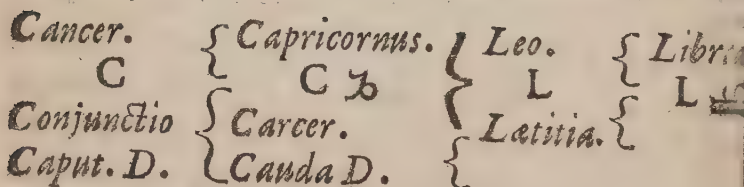 Cancer. { Capricornus. { Leo. { Libra
C C ♑ L L
Conjunctio { Carcer. Lætitia. {
Caput. D. Cauda D. {